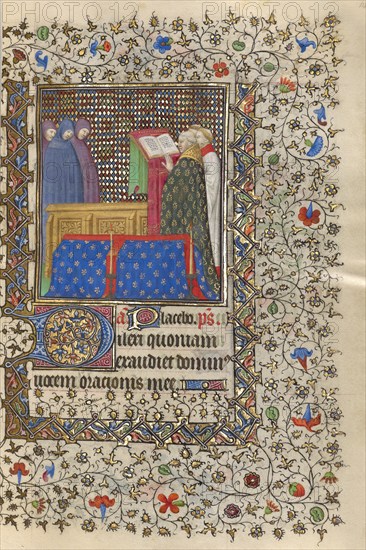 a Placebo. ps
Dilexi quoniam
exaudiet domin
uocem orationis mee